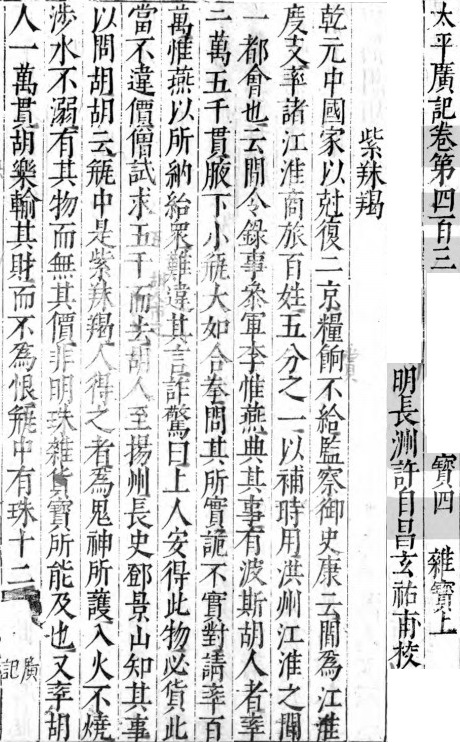 太平廣記卷第四百三
寶四 雜寶上
明長洲許自昌玄祐甫校
紫羯
乾元中國家以尅復二京糧餉不給監察御史康云間為江淮
度支率諸江淮商旅百姓五分之一以補時用洪州江淮之間
一都會也云間令錄事叅軍李惟燕典其事有波斯胡人者率
二萬五千貫腋下小瓶大如合拳問其所實詭不實對請率百
萬惟燕以所納紿衆難違其言詐驚曰上人安得此物必貨此
當不違價僧試求五千而去胡人至揚州長史鄧景山知其事
以問胡胡云瓶中是紫羯人得之者為鬼神所護入火不燒
涉水不溺有其物而無其價非明珠雜貨寶所能及也又率胡
人一萬貫胡樂輸其財而不為恨瓶中有珠十二
廣記